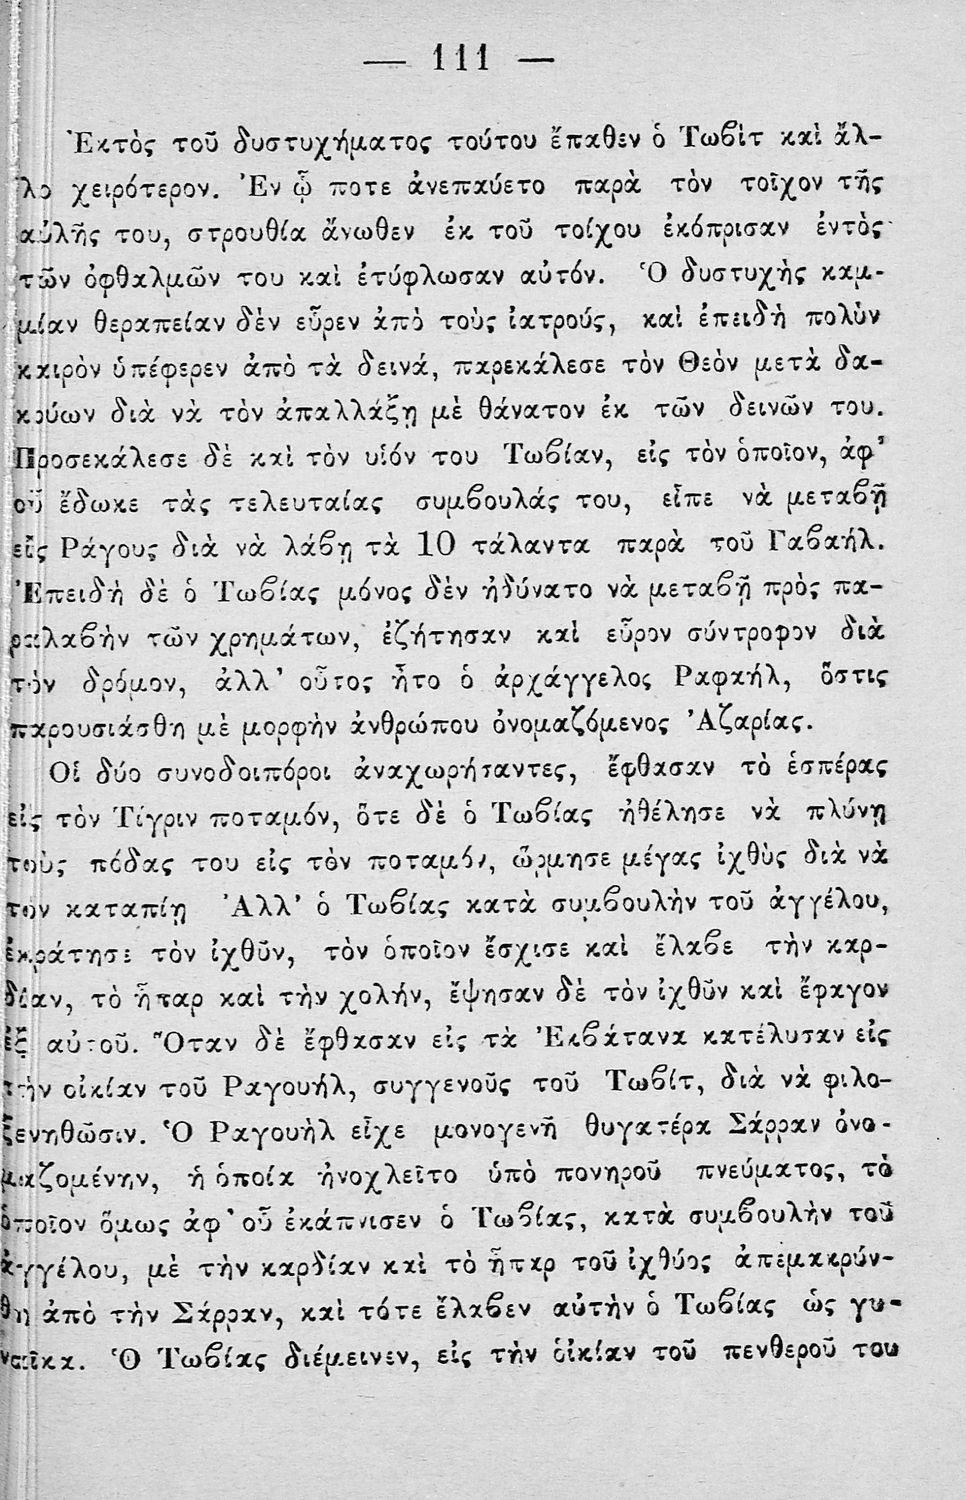 — 111 —
Ἐκτὸς τοῦ δυστυχήματος τούτου ἔπαθεν ὁ Τωβὶτ καὶ ἄλ-
λο χειρότερον. Ἐν ᾧ ποτε ἀνεπαύετο παρὰ τὸν τοῖχον τῆς
αὐλῆς του, στρουθία ἄνωθεν ἐκ τοῦ τοίχου ἐκόπρισαν ἐντὸς
τῶν ὀφθαλμῶν του καὶ ἐτύφλωσαν αὐτόν. Ὁ δυστυχὴς καμ-
μίαν θεραπείαν δὲν εὗρεν ἀπὸ τοὺς ἰατρούς, καὶ ἐπειδὴ πολὺν
καιρὸν ὑπέφερεν ἀπὸ τὰ δεινά, παρεκάλεσε τὸν Θεὸν μετὰ δα-
κρύων διὰ νὰ τὸν ἀπαλλάξῃ μὲ θάνατον ἐκ τῶν δεινῶν του.
Προσεκάλεσε δὲ καὶ τὸν υἱόν του Τωβίαν, εἰς τὸν ὁποῖον, ἀφ’
οὗ ἔδωκε τὰς τελευταίας συμβουλάς του, εἶπε νὰ μεταβῇ
εἰς Ράγους διὰ νὰ λάβῃ τὰ 10 τάλαντα παρὰ τοῦ Γαβαήλ.
Ἐπειδὴ δὲ ὁ Τωβίας μόνος δὲν ἠδύνατο νὰ μεταβῇ πρὸς πα-
ραλαβὴν τῶν χρημάτων, ἐζήτησαν καὶ εὗρον σύντροφον διὰ
τὸν δρόμον, ἀλλ’ οὗτος ἦτο ὁ ἀρχάγγελος Ραφαήλ, ὅστις
παρουσιάσθη μὲ μορφὴν ἀνθρώπου ὀνομαζόμενος Ἀζαρίας.
Οἱ δύο συνοδοιπόροι ἀναχωρήσαντες, ἔφθασαν τὸ ἑσπέρας
εἰς τὸν Τίγριν ποταμόν, ὅτε δὲ ὁ Τωβίας ἠθέλησε νὰ πλύνῃ
τοὺς πόδας του εἰς τὸν ποταμόν, ὥρμησε μέγας ἰχθὺς διὰ νὰ
τὸν καταπίῃ Ἀλλ’ ὁ Τωβίας κατὰ συμβουλὴν τοῦ ἀγγέλου,
ἐκράτησε τὸν ἰχθῦν, τὸν ὁποῖον ἔσχισε καὶ ἔλαβε τὴν καρ-
δίαν, τὸ ἧπαρ καὶ τὴν χολήν, ἔψησαν δὲ τὸν ἰχθῦν καὶ ἔφαγον
ἐξ αὐτοῦ. Ὅταν δὲ ἔφθασαν εἰς τὰ Ἐκβάτανα κατέλυσαν εἰς
τὴν οἰκίαν τοῦ Ραγουήλ, συγγενοῦς τοῦ Τωβίτ, διὰ νὰ φιλο-
ξενηθῶσιν. Ὁ Ραγουὴλ εἶχε μονογενῆ θυγατέρα Σάρραν ὀνο-
μαζομένην, ἡ ὁποία ἠνοχλεῖτο ὑπὸ πονηροῦ πνεύματος, τὸ
ὁποῖον ὅμως ἀφ’ οὗ ἐκάπνισεν ὁ Τωβίας, κατὰ συμβουλὴν τοῦ
ἀγγέλου, μὲ τὴν καρδίαν καὶ τὸ ἧπαρ τοῦ ἰχθύος ἀπεμακρύν-
θη ἀπὸ τὴν Σάρραν, καὶ τότε ἔλαβεν αὐτὴν ὁ Τωβίας ὡς γυ-
ναῖκα. Ὁ Τωβίας διέμεινεν, εἰς τὴν οἰκίαν τοῦ πενθεροῦ του